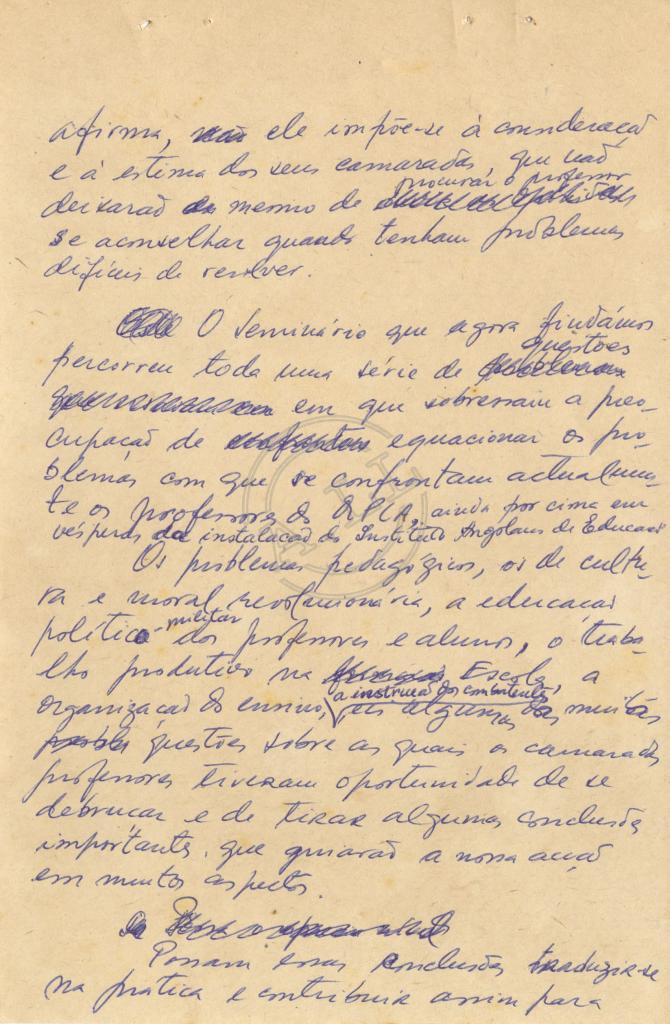 afirma, ele impõe-se à consideração
e à estima dos seus camaradas, que não
procurar o professor
deixarão mesmo de
se aconselhar quando tenham problemas
difíceis de resolver.
O Seminário que agora findámos
questões
percorreu toda uma série de
em que sobressaiu a preo-
cupação de equacionar os pro-
blemas com que se confrontam actualmen-
te os professores do MPLA, ainda por cima em
vésperas da instalação do Instituto Angolano de Educação
Os problemas pedagógicos, os de cultu-
ra e moral revolucionária, a educação
militar
político- dos professores e alunos, o traba-
lho produtivo na Escola, a
a instrução dos combatentes
organização do ensino, eis algumas das muitas
questões sobre as quais os camaradas
professores tiveram oportunidade de se
debruçar e de tirar algumas conclusões
importantes, que guiarão a nossa acção
em muitos aspectos.
Possam essas conclusões traduzir-se
na prática e contribuir assim para